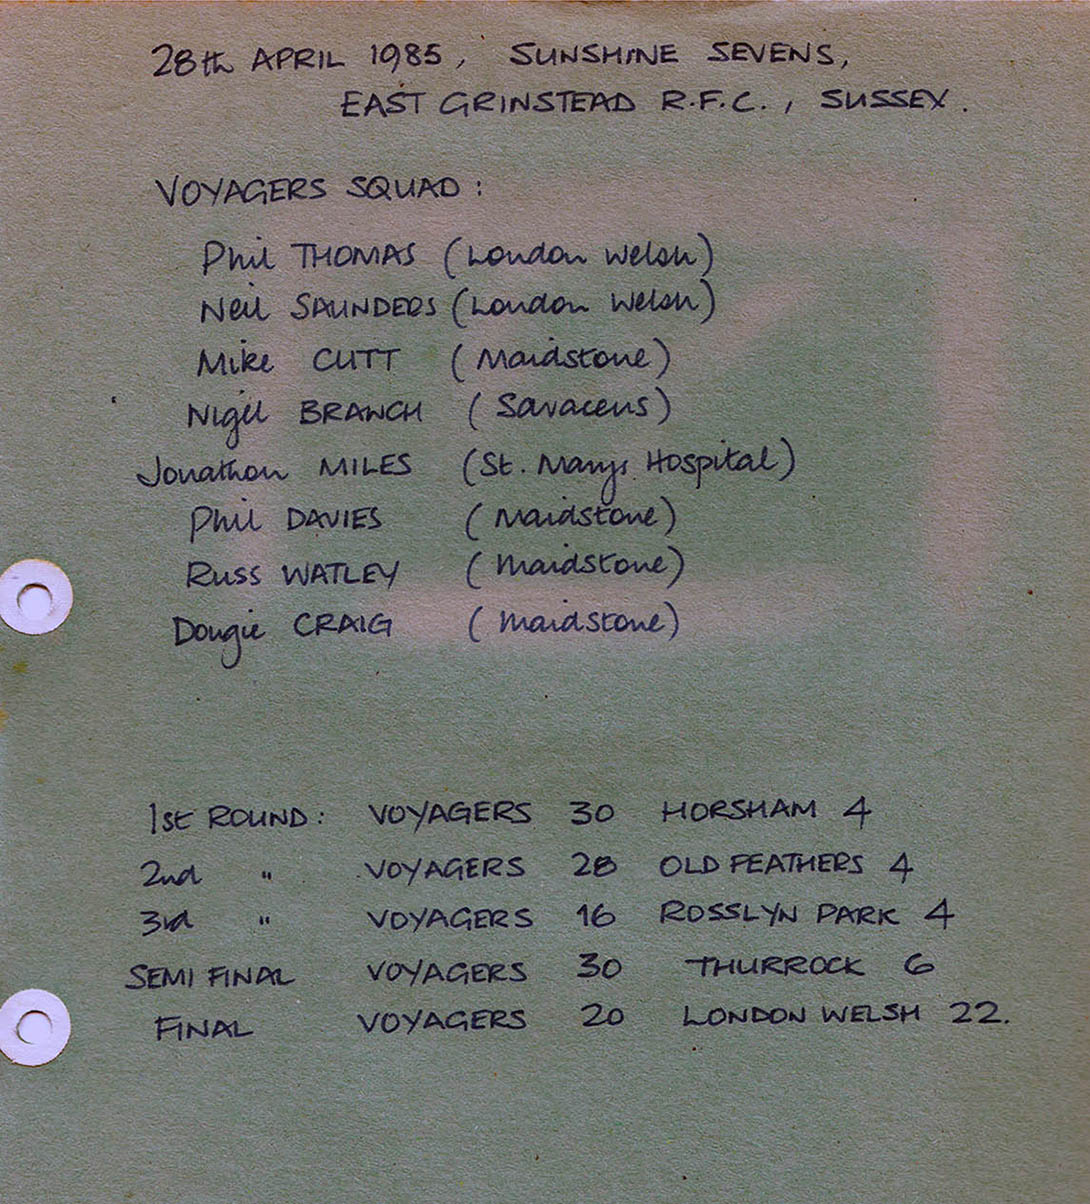 28th APRIL 1985, SUNSHINE SEVENS,
EAST GRINSTEAD R.F.C., SUSSEX.
VOYAGERS SQUAD:
Phil THOMAS (London Welsh)
Neil SAUNDERS (London Welsh)
Mike CUTT (Maidstone)
Nigel BRANCH (Saracens)
Jonathon MILES (St. Marys Hospital)
Phil DAVIES (Maidstone)
Russ WATLEY (Maidstone)
Dougie CRAIG (Maidstone)
1st ROUND: VOYAGERS 30 HORSHAM 4
2nd " VOYAGERS 28 OLD FEATHERS 4
3rd " VOYAGERS 16 ROSSLYN PARK 4
SEMI FINAL VOYAGERS 30 THURROCK 6
FINAL VOYAGERS 20 LONDON WELSH 22.